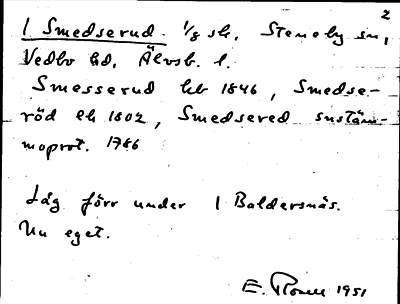 2
1 Smedserud. 1/8 sk. Steneby sn,
Vedbo hd, Älvsb. l.
Smesserud hb 1846, Smedse-
röd eb 1802, Smedsered snstäm-
moprot. 1786
Låg förr under 1 Baldersnäs.
Nu eget.
E. 1951